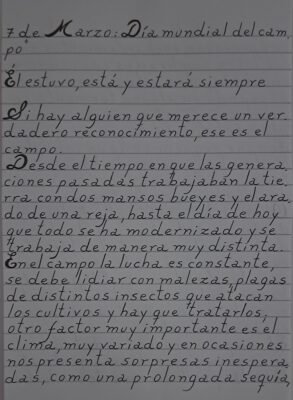 7 de Marzo: Día mundial del cam
po
Él estuvo, está y estará siempre
Si hay alguien que merece un ver
dadero reconocimiento, ese es el
campo.
Desde el tiempo en que las genera,
ciones pasadas trabajaban la tie,
rra con dos mansos bueyes y el ara,
do de una reja, hasta el día de hoy
que todo se ha modernizado y se
trabaja de manera muy distinta.
En el campo la lucha es constante,
se debe lidiar con malezas, plagas
de distintos insectos que atacan
los cultivos y hay que tratarlos,
otro factor muy importante es el
clima, muy variado y en ocasiones
nos presenta sorpresas inespera,
das, como una prolongada sequía,